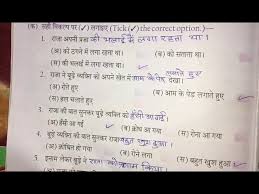 (क) सही विकल्प पर ✓ लगाइए (Tick ✓ the correct option.) –
1. राजा अपनी प्रजा की भलाई में लगा रहता था।
(अ) को ठगने में लगा रहता था। (ब) को सताता था।
(स) की भलाई में लगा रहता था। ✓
2. राजा ने बूढ़े व्यक्ति को अपने खेत में आम के पेड़ लगाते हुए देखा।
(अ) रोते हुए (ब) आम के पेड़ लगाते हुए ✓
(स) हल चलाते हुए
3. राजा को बूढ़े व्यक्ति की बात सुनकर हँसी आ गई।
(अ) हँसी आ गई ✓ (ब) क्रोध आ गया (स) रोना आ गया
4. बूढ़े व्यक्ति की बात सुनकर राजा बहुत खुश हुआ।
(अ) क्रोधित हो गया (ब) रोने लगा
(स) बहुत खुश हुआ ✓
5. इनाम लेकर बूढ़े ने राजा को प्रणाम किया।